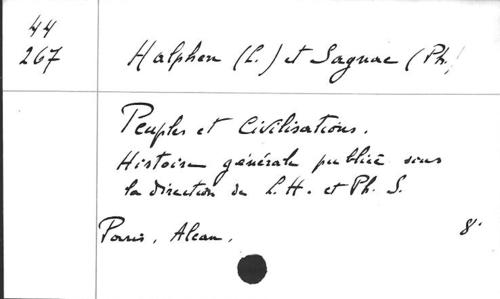 44
267
Halphen (L.) et Sagnac (Ph.)
Peuples et Civilisations.
Histoire générale publiée sous
la direction de L. H. et Ph. S.
Paris, Alcan, 8°